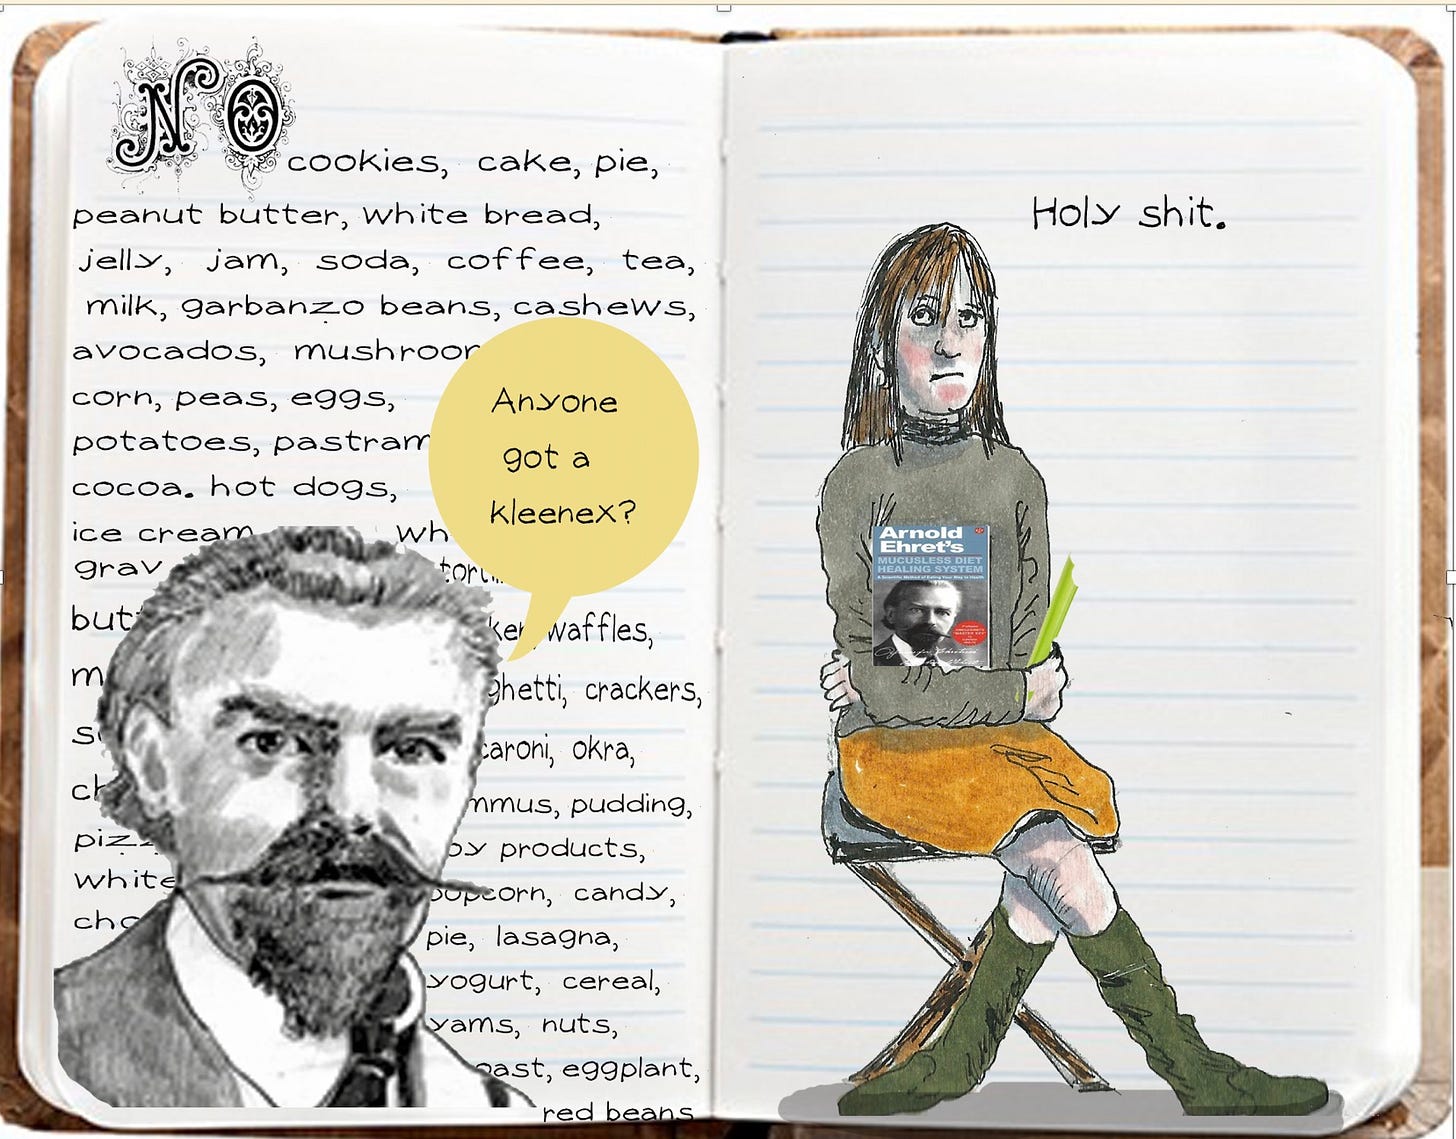 NO cookies, cake, pie,
peanut butter, white bread,
jelly, jam, soda, coffee, tea,
milk, garbanzo beans, cashews,
avocados, mushroom
corn, peas, eggs,
potatoes, pastram
cocoa. hot dogs,
ice cream wh
grav torti
butt ker waffles,
m ghetti, crackers,
s caroni, okra,
ch mmus, pudding,
pizz oy products,
white popcorn, candy,
cho pie, lasagna,
yogurt, cereal,
yams, nuts,
oast, eggplant,
red beans
Anyone
got a
kleenex?
Holy shit.
Arnold
Ehret's
MUCUSLESS DIET
HEALING SYSTEM
A Scientific Method of Eating Your Way to Health